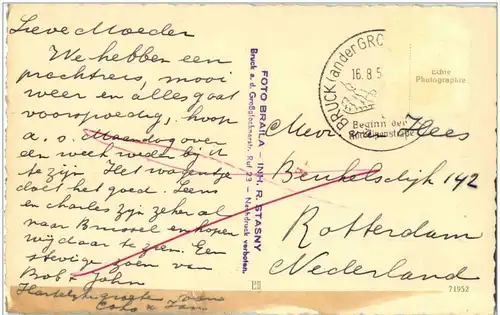 Lieve Moeder
We hebben een
prachtreis, mooi
weer en alles gaat
voorspoedig, hoop
a.s. Maandag over
een week weder bij U
te zijn. Het wagentje
doet het goed. Leens
en Charles zijn zeker al
naar Brussel en hopen
wij daar te zien. Een
stevige zoen van
Bob + John
Hartelijke groeten van
FOTO BRAILA – INH. R. STASNY
Bruck a. d. Großglocknerstr. Ruf 23 – Nachdruck verboten.
BRUCK (an der GRO
16.8.5
Beginn der
Echte
Photographie
Mevr. Hees
Beukelsdijk 142
Rotterdam
Nederland
71952